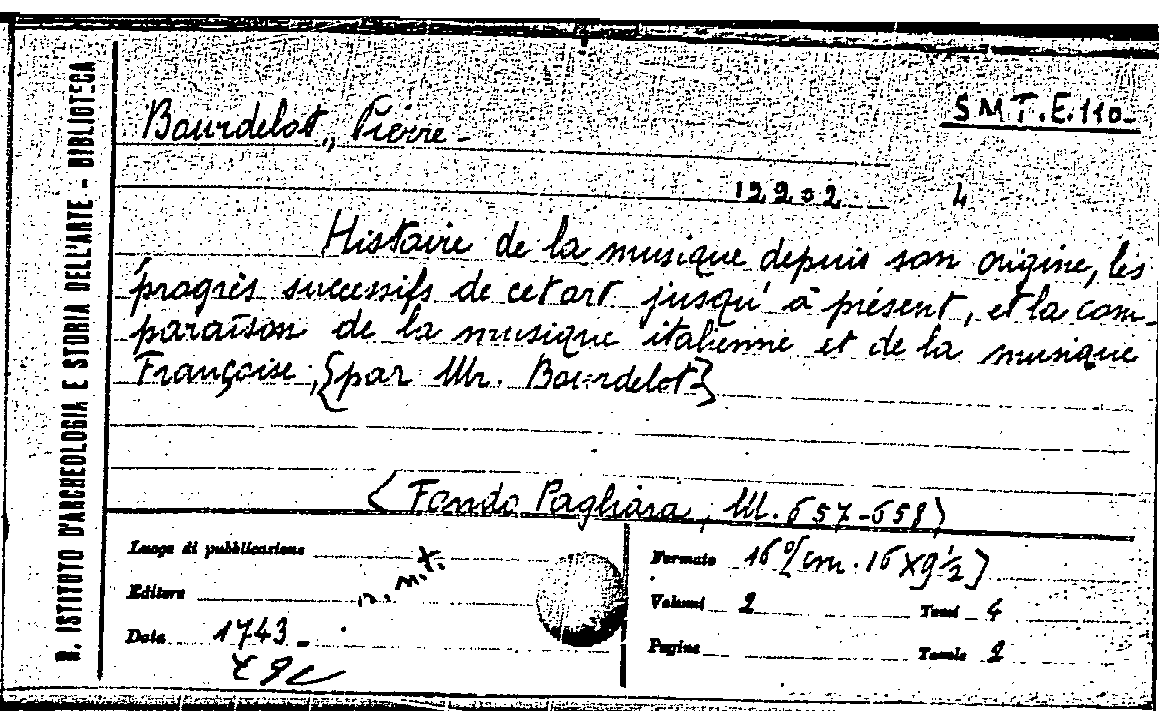 R. ISTITUTO D'ARCHEOLOGIA E STORIA DELL'ARTE - BIBLIOTECA
S M T. E. 110-
Bourdelot, Pierre -
12202 4
Histoire de la musique depuis son origine, les
progrès successifs de cet art jusqu'à présent, et la com-
paraison de la musique italienne et de la musique
Françoise; {par Mr. Bourdelot}
(Fondo Pagliara, M. 657-658)
Luogo di pubblicazione
Editore n.n.t.
Data 1743-
Formato 16° [cm. 16 x 9 ½]
Volumi 2 Tomi 4
Pagine Tavole 2